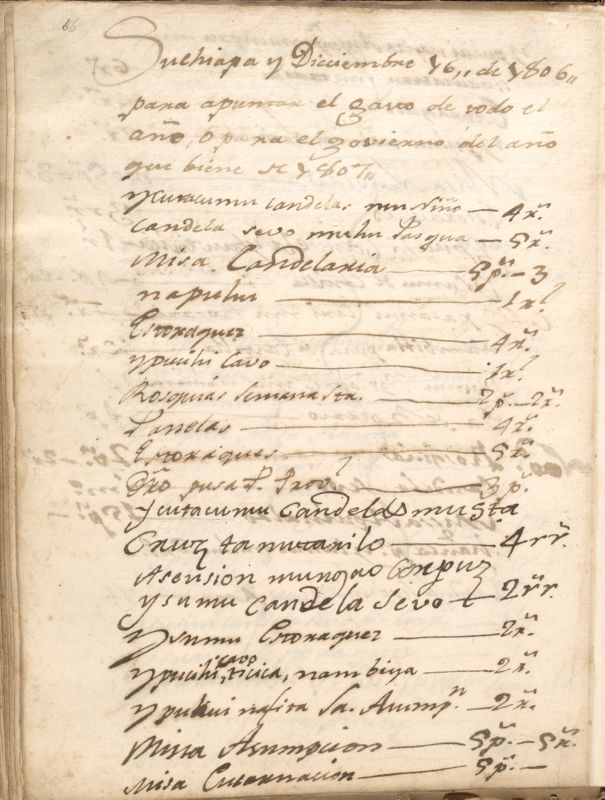 66
Suchiapa y Diciembre 16,, de 1806,,
para apuntar el gavo de todo el
año, o para el govierno del año
que biene de 1807,,
ycutacumu candelas mu Niño — 4 rr.
Candela sevo muhu Pasqua — 5 rr.
Misa Candelaria — 5 ps. — 3
napuhu — 1 rl.
Estoraquez — 4 rr.
ypucihi cavo — 1 rl.
Rosquias Semana Sta. — 2 ps. — 2 rr.
Panelas — 4 rr.
Estoraques — 5 rr.
3 ps.
ycutacumu Candelas mu Sta
Cruz ta nucanilo — 4 rr.
Asension Corpuz
ysumu candela sevo — 2 rr.
ysumu Estoraquez — 2 rr.
ypucihi cavo, ticica, nambiya — 2 rr.
nasita Sa. Asumpn. — 2 rr.
Missa Asumpcion — 5 ps. — 5 rr.
Misa Encarnacion — 5 ps. —